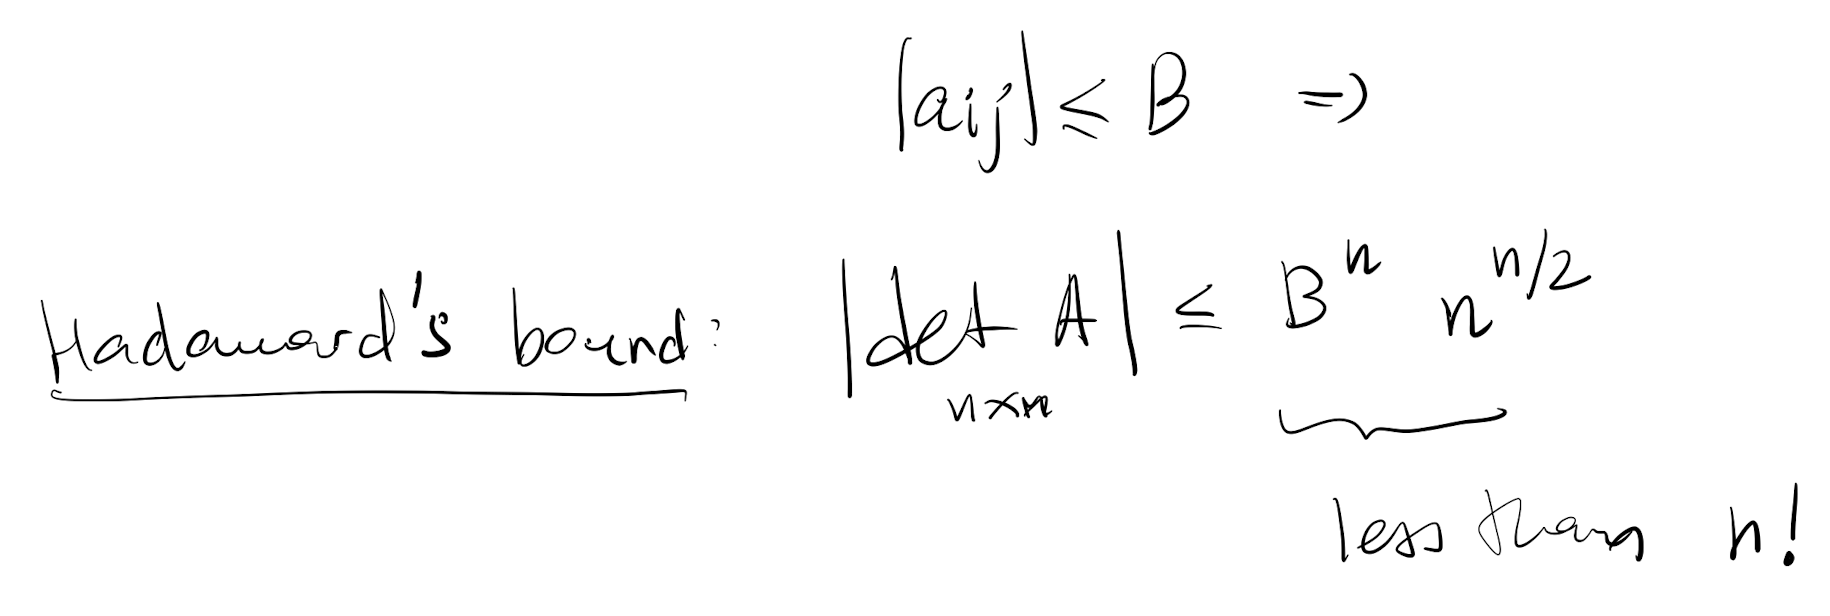 |aij| ≤ B ⇒
Hadamard's bound: |det A| ≤ B^n n^{n/2}
n×n
less than n!